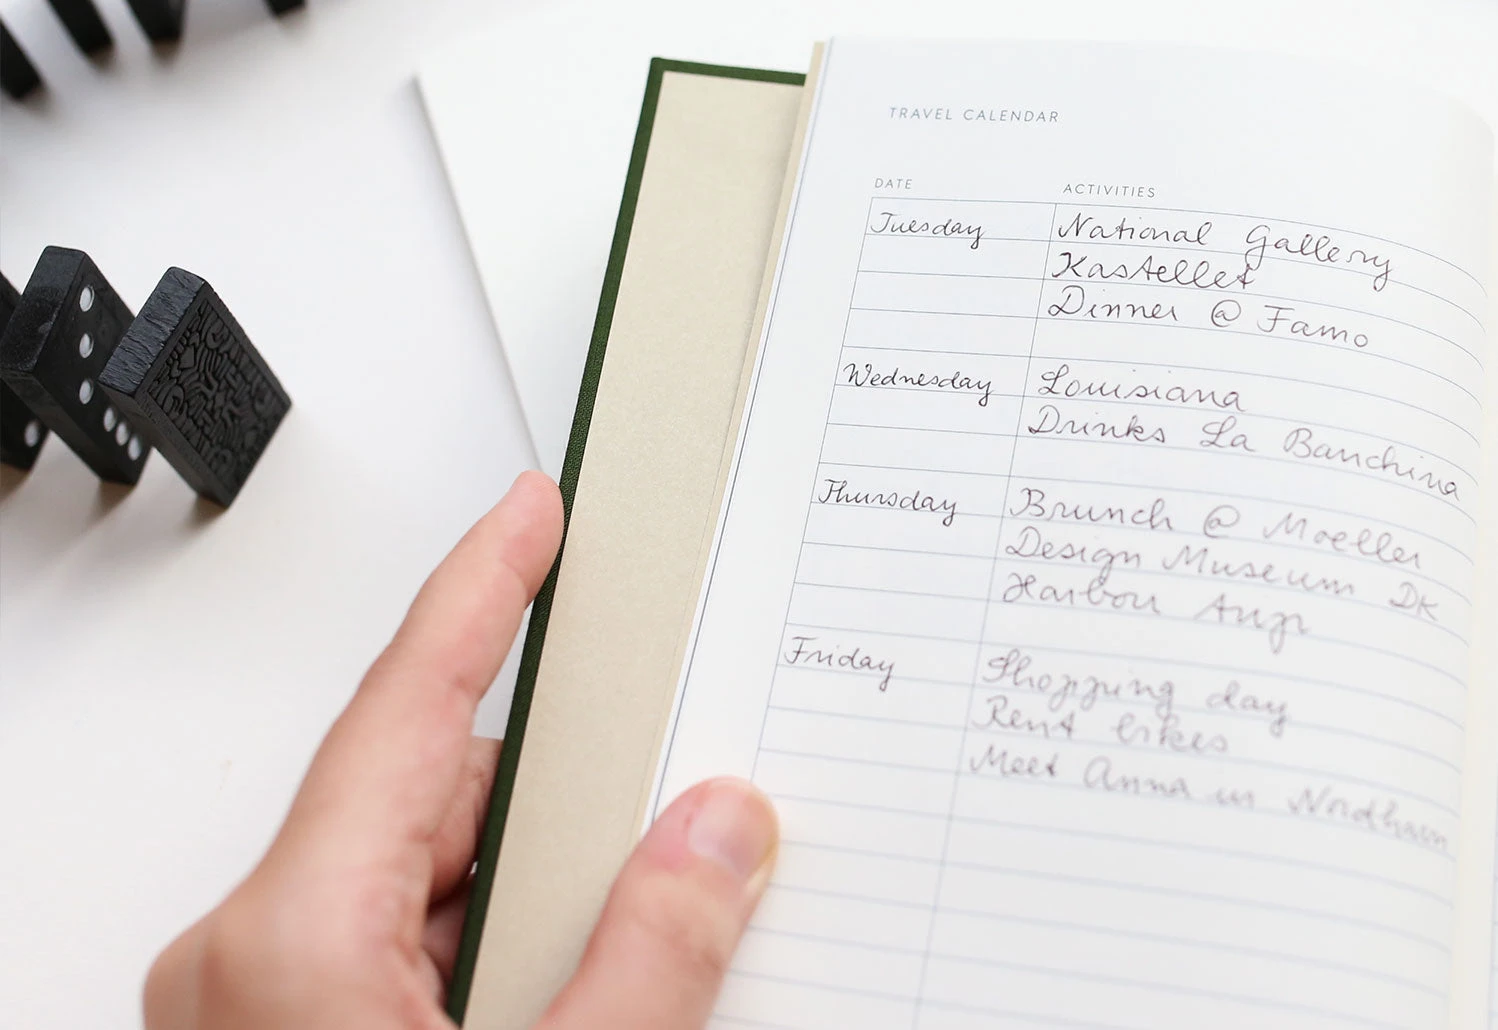 TRAVEL CALENDAR
DATE ACTIVITIES
Tuesday National Gallery
Kastellet
Dinner @ Famo
Wednesday Louisiana
Drinks La Banchina
Thursday Brunch @ Moeller
Design Museum DK
Harbour
Friday Shopping day
Rent bikes
Meet Anna in Nordhavn